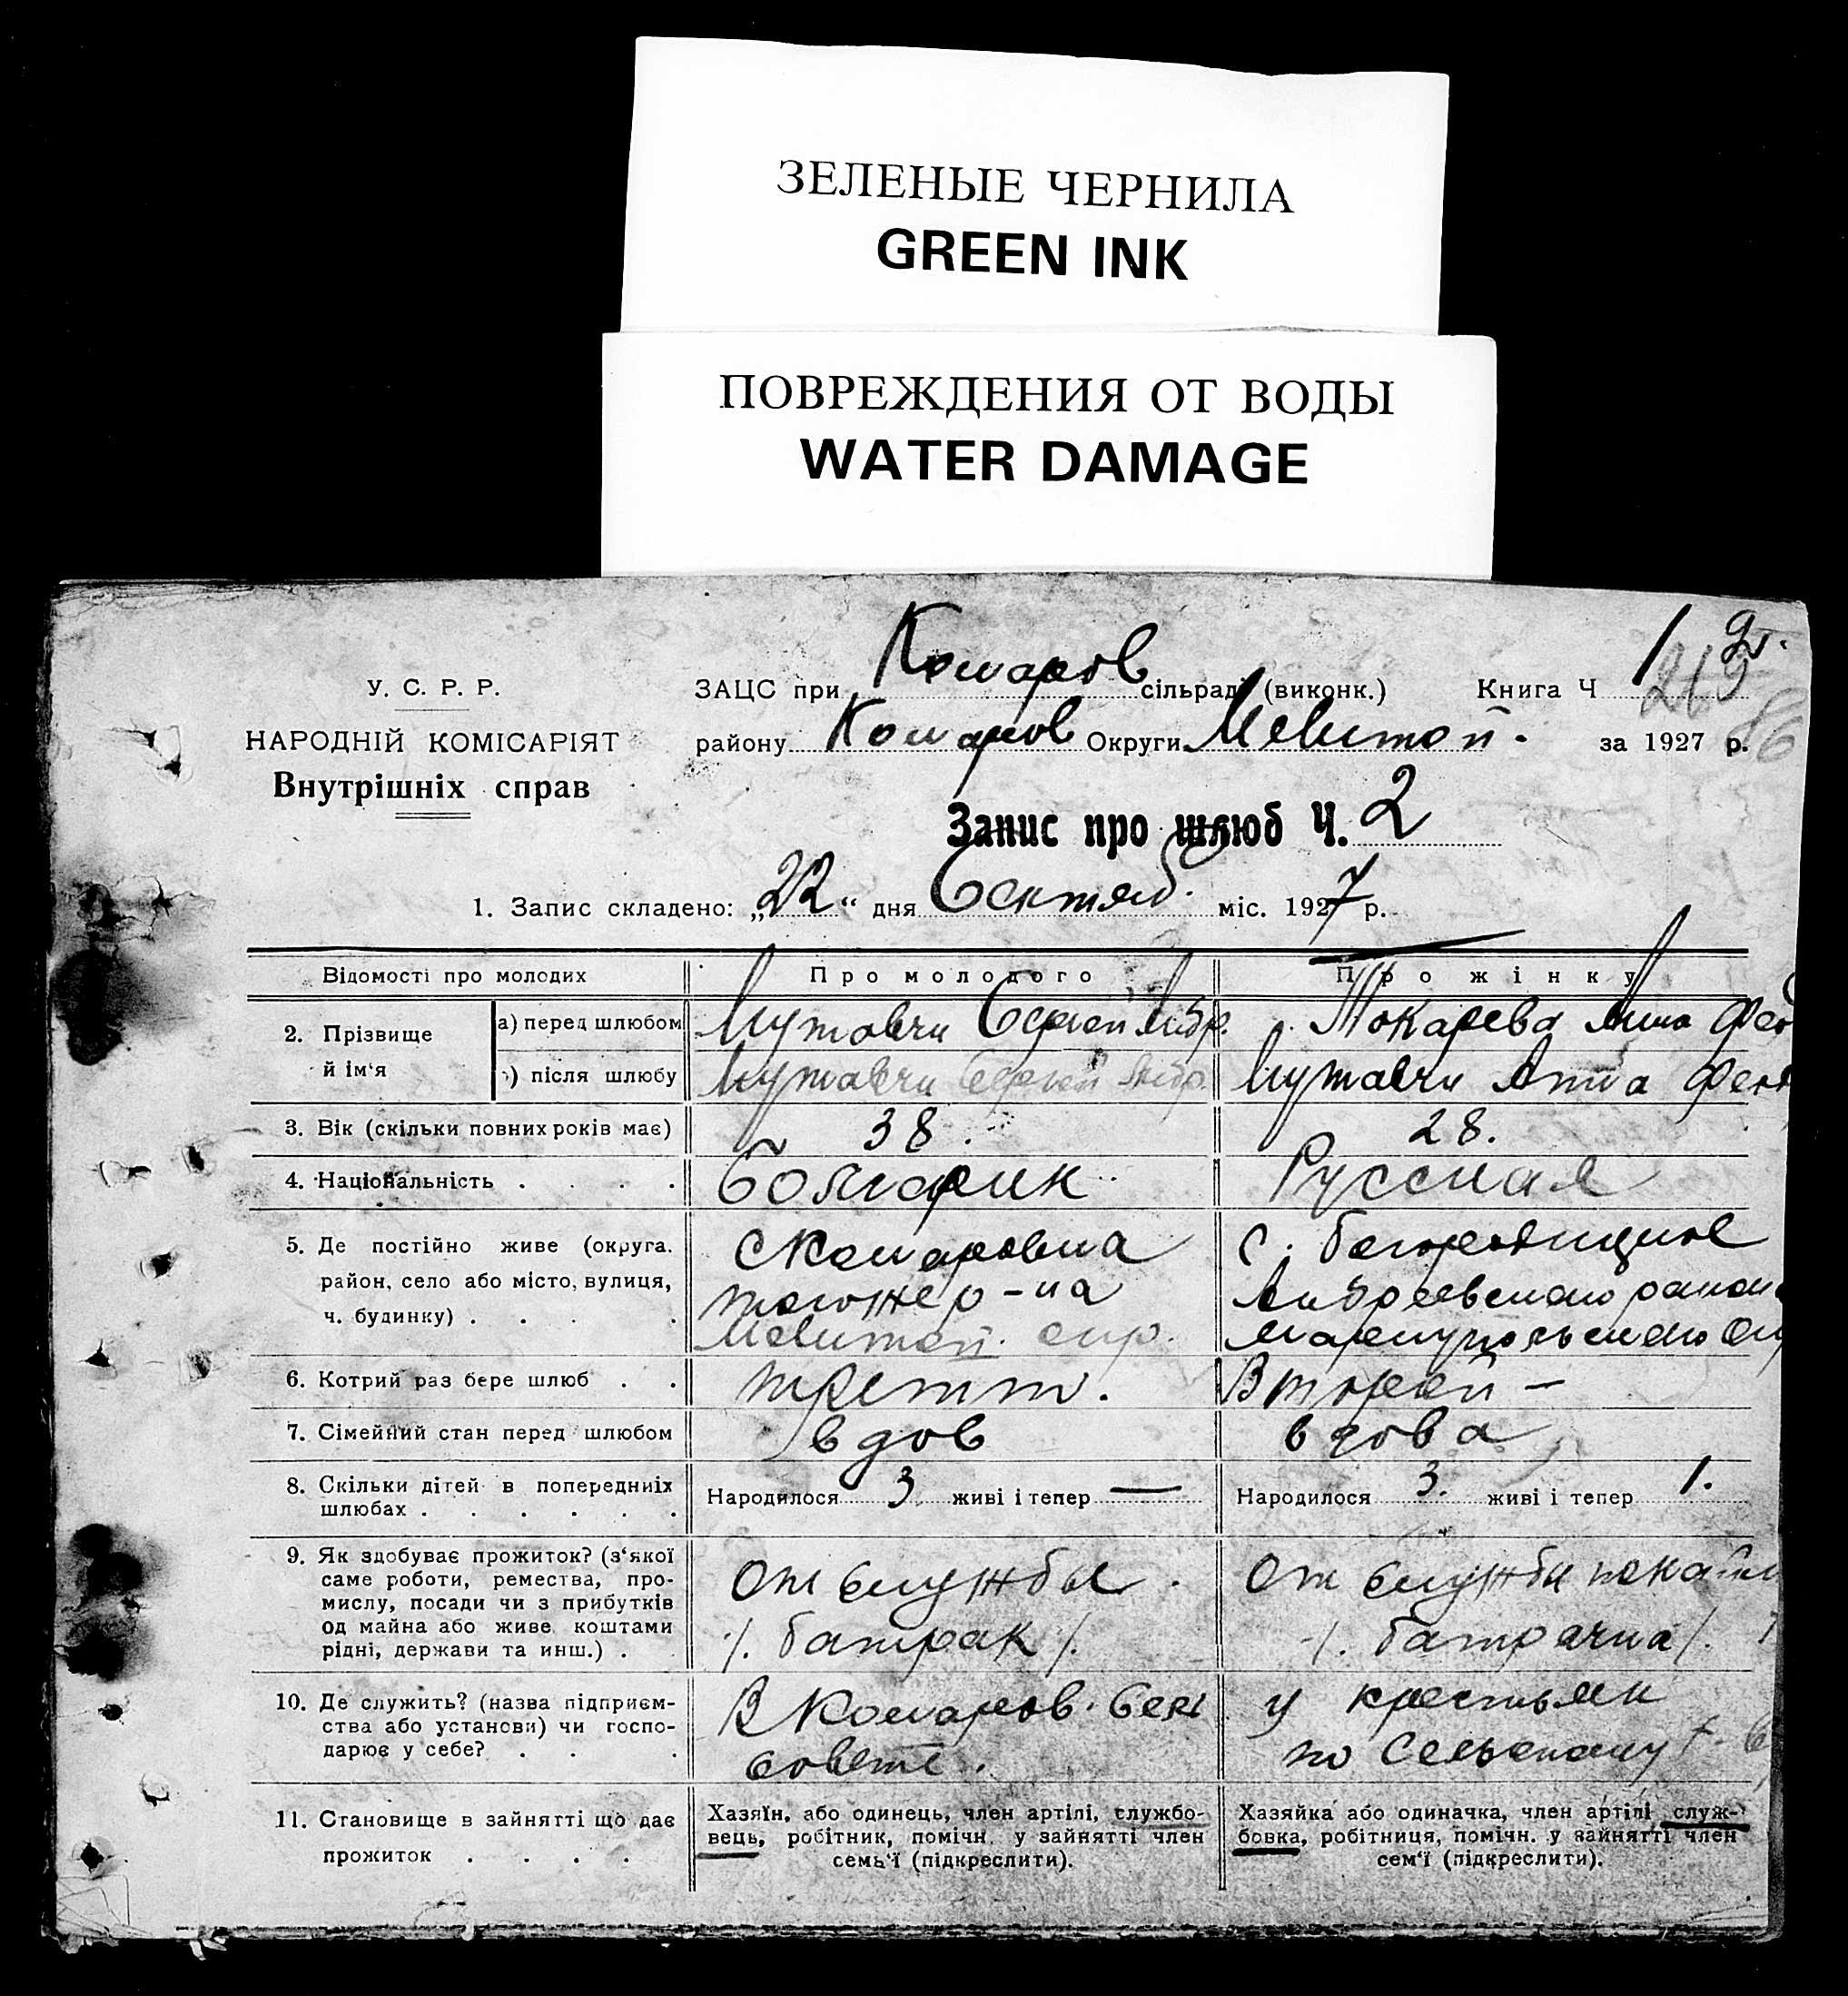 ЗЕЛЕНЫЕ ЧЕРНИЛА
GREEN INK
ПОВРЕЖДЕНИЯ ОТ ВОДЫ
WATER DAMAGE
У. С. Р. Р.
НАРОДНІЙ КОМІСАРІЯТ
Внутрішніх справ
ЗАЦС при Комаров сільраді (виконк.) Книга Ч 1
району Комаров Округи Мелитоп. за 1927 р.
Запис про шлюб Ч. 2
1. Запис складено: „22“ дня Сентяб. міс. 1927 р.
Відомості про молодих Про молодого Про жінку
2. Прізвище й ім‘я
а) перед шлюбом Мутавчи Сергей Андр. Токарева Анна Фео
б) після шлюбу Мутавчи Сергей Андр. Мутавчи Анна
3. Вік (скільки повних років має) 38. 28.
4. Національність . . . . Болгарик Русская
5. Де постійно живе (округа, район, село або місто, вулиця, ч. будинку) . . . .
с Комаровка
тогожер-на
Мелитоп. окр.
с. Богородицкое
Андреевского район
Мариупольского Ок
6. Котрий раз бере шлюб . . третт. Второй -
7. Сімейний стан перед шлюбом вдов вдова
8. Скільки дітей в попередніх шлюбах . . . . . .
Народилося 3 живі і тепер —
Народилося 3. живі і тепер 1.
9. Як здобуває прожиток? (з‘якої саме роботи, ремества, промислу, посади чи з прибутків од майна або живе коштами рідні, держави та инш.) .
От службы.
/. батрак /.
От службы
/. батрачка /.
10. Де служить? (назва підприємства або установи) чи господарює у себе? . . .
В Комаров. Сель
совете.
у крестьян
по
11. Становище в зайнятті що дає прожиток . . . .
Хазяїн, або одинець, член артілі, службовець, робітник, помічн. у зайнятті член семь‘ї (підкреслити).
Хазяйка або одиначка, член артілі службовка, робітниця, помічн. у зайнятті член сем‘ї (підкреслити).